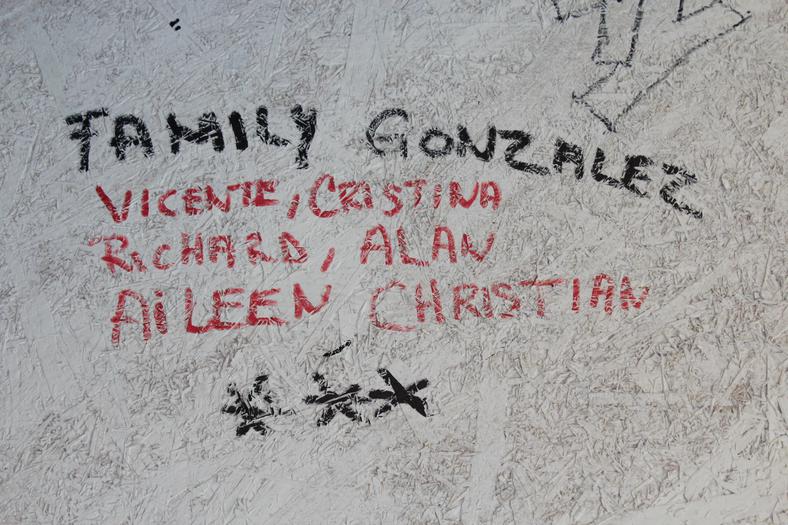 FAMILY GONZALEZ
VICENTE, CRISTINA
RICHARD, ALAN
AiLEEN CHRISTIAN